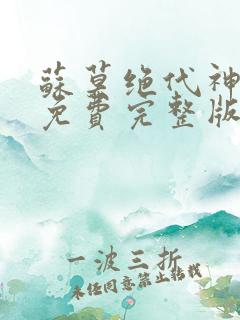 蘇莫绝代神
免費完整版
一波三折
未经同意禁止转载